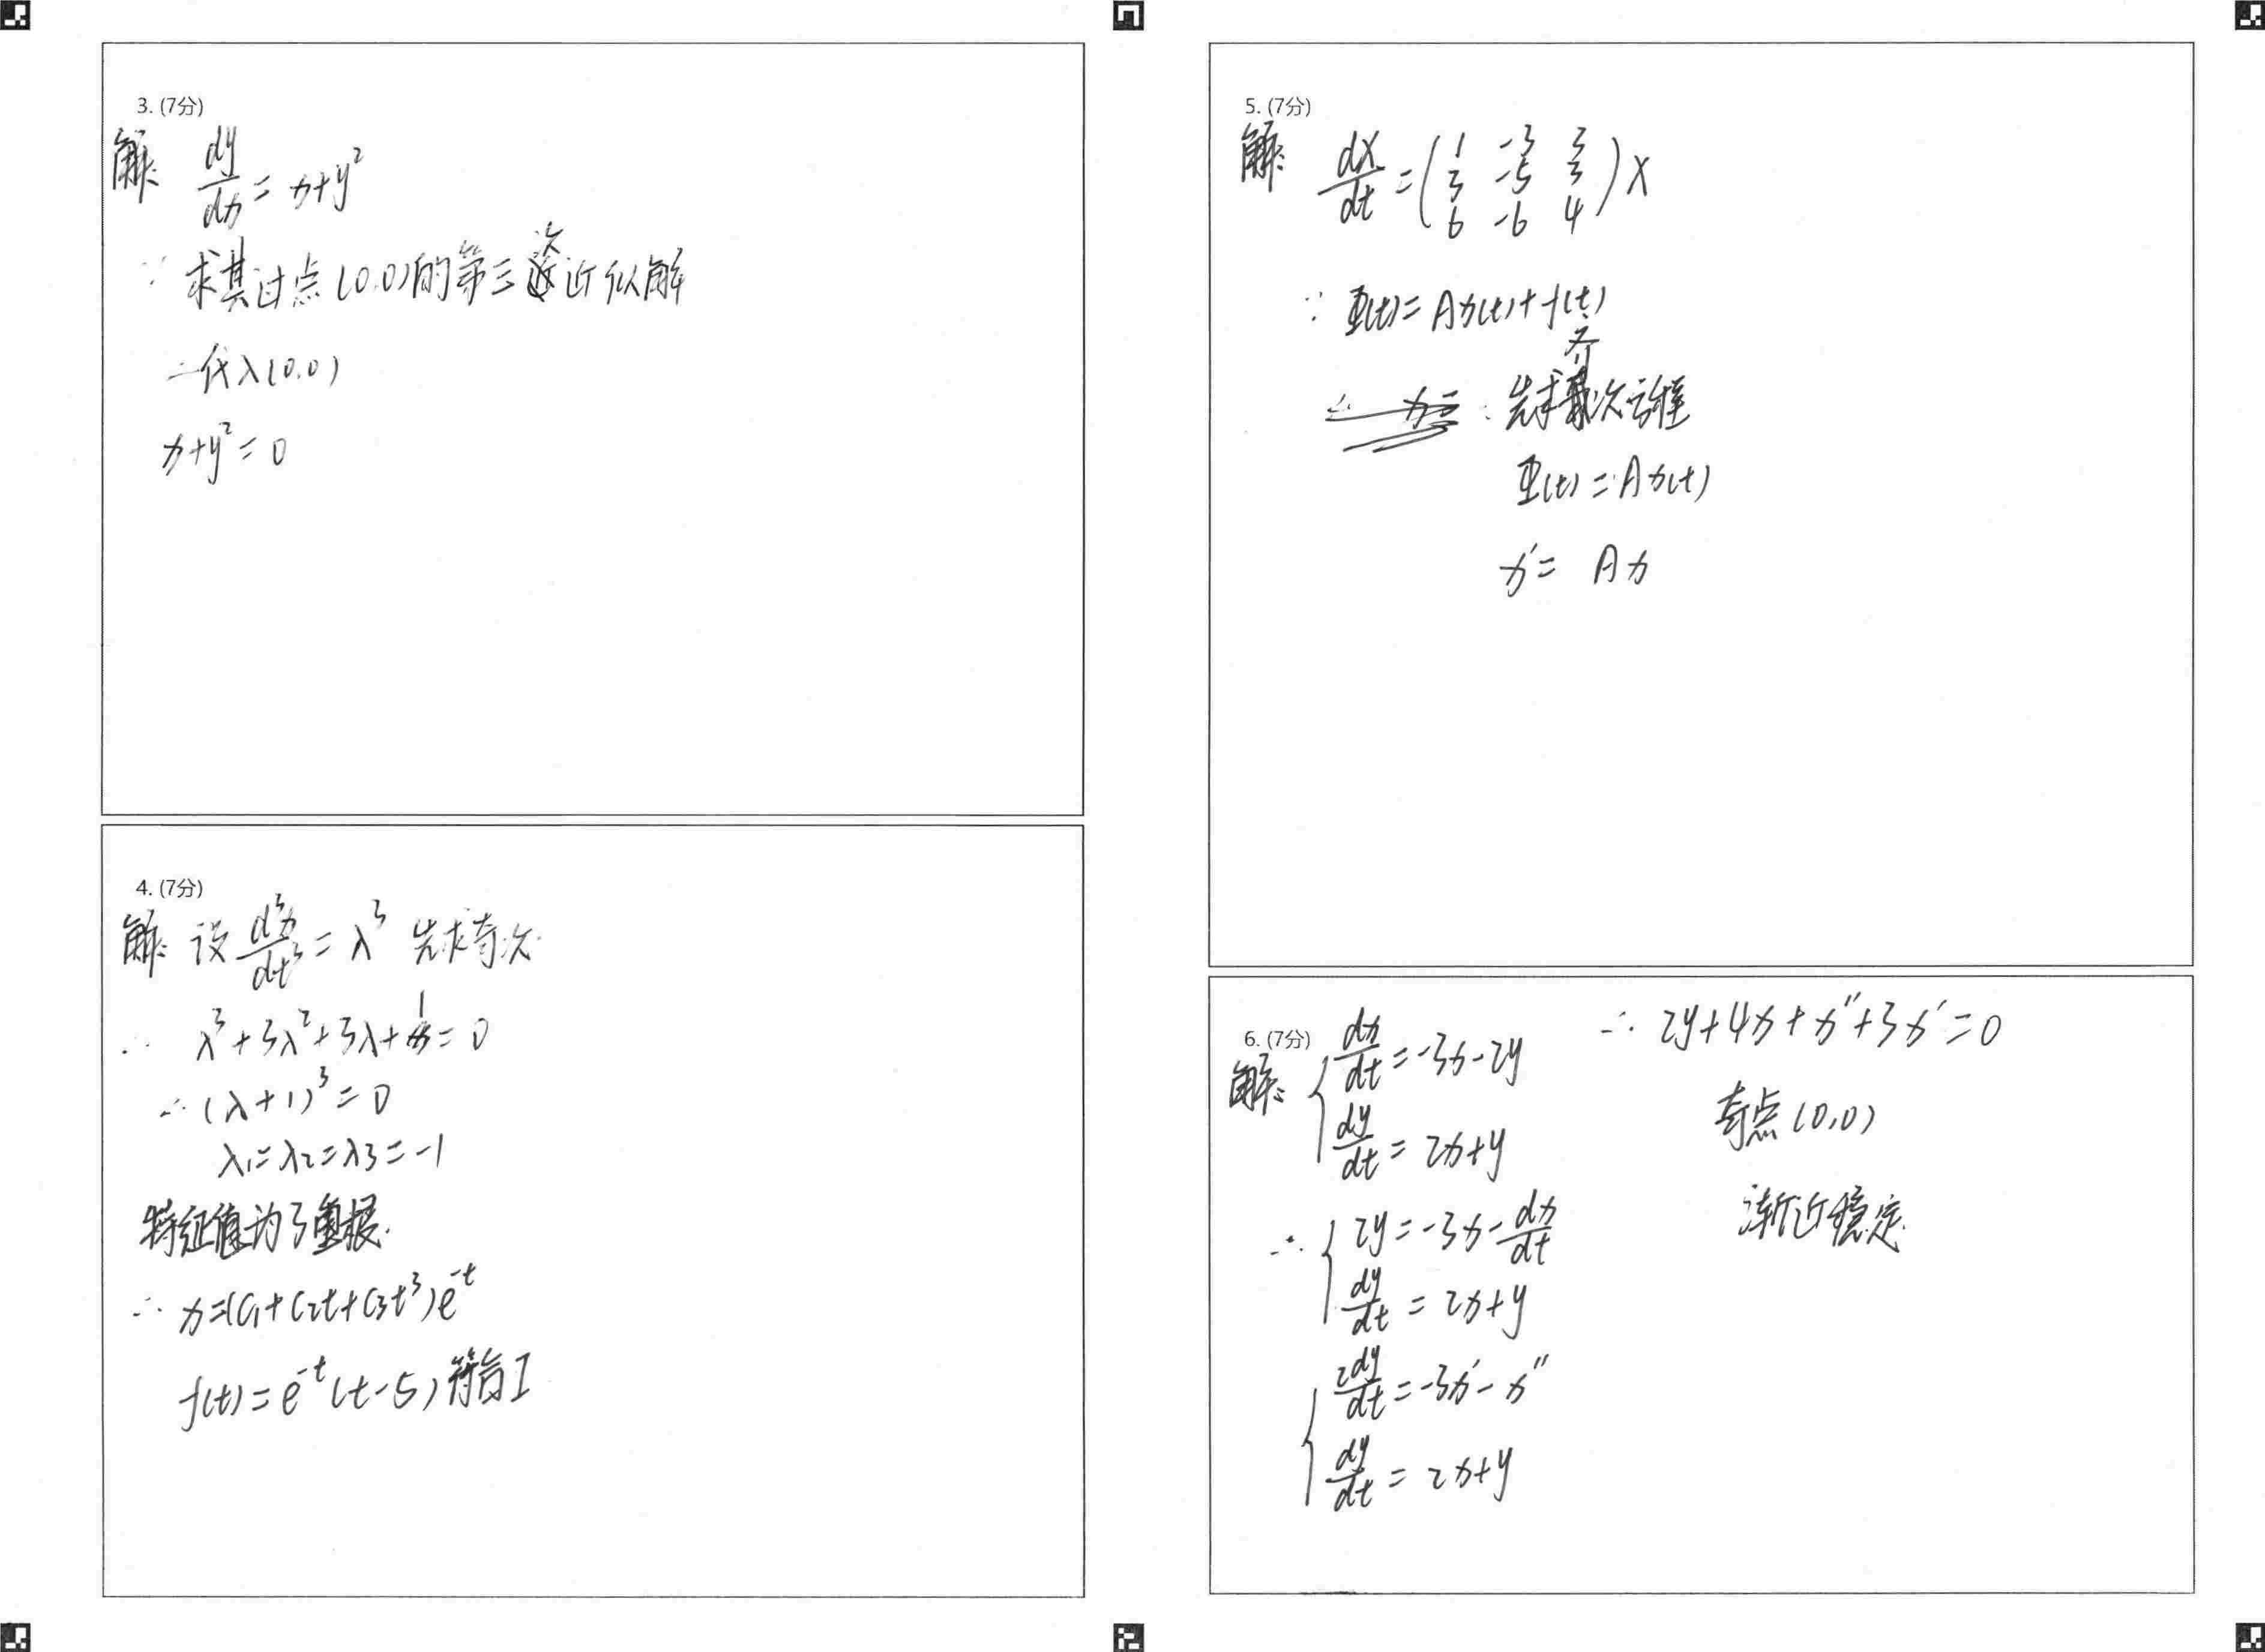 3. (7分)
解: dy/dx = x+y²
∵ 求其过点(0,0)的第三次近似解
∴代入(0,0)
x+y²=0
4. (7分)
解: 设 d³x/dt³ = λ³ 先求奇次
∴ λ³+3λ²+3λ+1=0
∴ (λ+1)³=0
λ₁=λ₂=λ₃=-1
特征值为3重根.
∴ x=(C₁+C₂t+C₃t³)e^-t
f(t)=e^-t(t-5)符合I
5. (7分)
解: dX/dt = (1 -3 3
3 -5 3
6 -6 4) X
∵ Φ(t)=Ax(t)+f(t)
先求齐次方程
Φ(t)=Ax(t)
x'= Ax
6. (7分)
解: { dx/dt = -3x-2y
dy/dt = 2x+y
∴ { 2y=-3x-dx/dt
dy/dt = 2x+y
{ 2dy/dt = -3x'-x''
dy/dt = 2x+y
∴ 2y+4x+x''+3x'=0
奇点(0,0)
渐近稳定